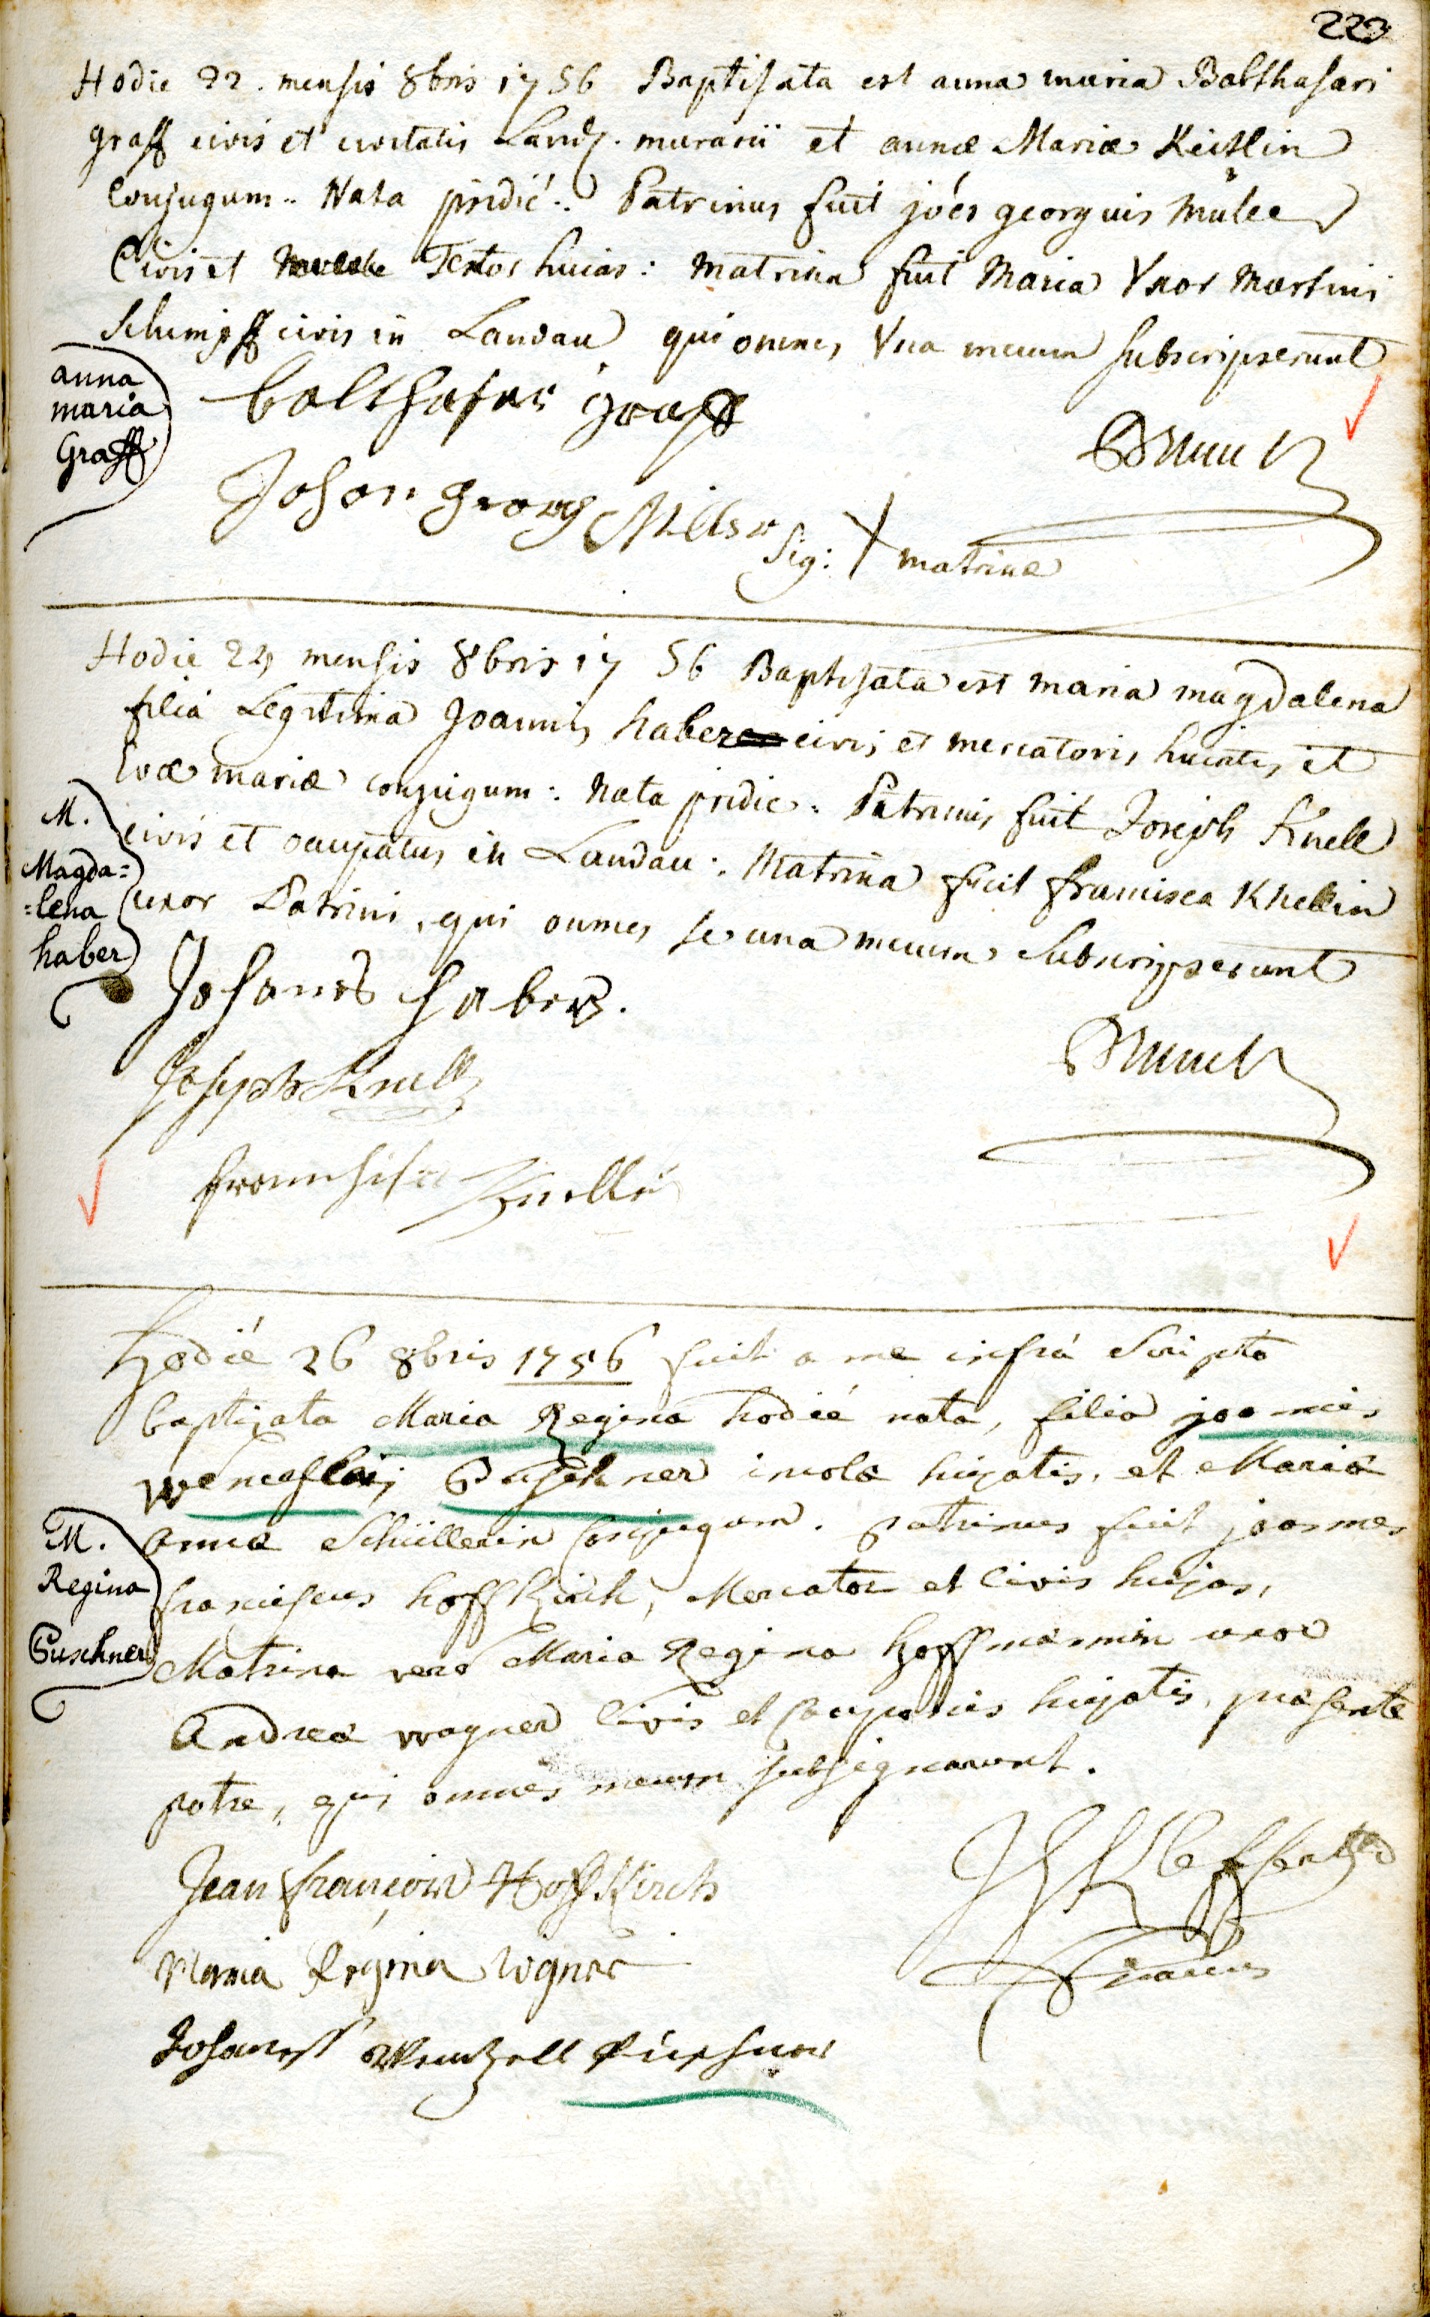 223
Hodie 22. mensis 8bris 1756 Baptisata est anna maria Balthasari
graff civis et civitatis Land. murarii et annæ Mariæ Keitlin
Conjugum. Nata pridie. Patrinus fuit joes georgius Müller
Civis et Textor huias: matrina fuit Maria Vxor Martini
Schimpff civis in Landau qui omnes Vna mecum subscripserunt
anna
maria
Graff
balthasar graff
Johan georg Miller
Sig: X matrinæ
Hodie 24 mensis 8bris 1756 Baptisata est maria magdalena
filia Legitima Joannis haber civis et mercatoris huiatis et
Evæ mariæ conjugum: Nata pridie: Patrinus fuit Joseph Knell
civis et caupatus in Landau: Matrina fuit francisca Knellin
uxor Patrini, qui omnes se una mecum Subscripserunt
M.
Magda=
=lena
haber
Johanes haber.
Joseph Knell
Hodié 26 8bris 1756 fuit a me infrá Scripto
baptizata Maria Regina hodié nata, filia joannis
Wenceslai Puschner incolæ hujatis, et Mariæ
annæ Schüllerin Conjugum. patrinus fuit joannes
franciscus hoffkirch, Mercator et Civis hujas,
Matrina vero Maria Regina hoffmannin uxor
Andreæ wagner Civis et cauponis hujatis, præsente
patre, qui omnes mecum subsignarunt.
M.
Regina
Puschner
Jean françois Hoffkirch
Maria Regina Wagner
Johanes Wentzell Püschner